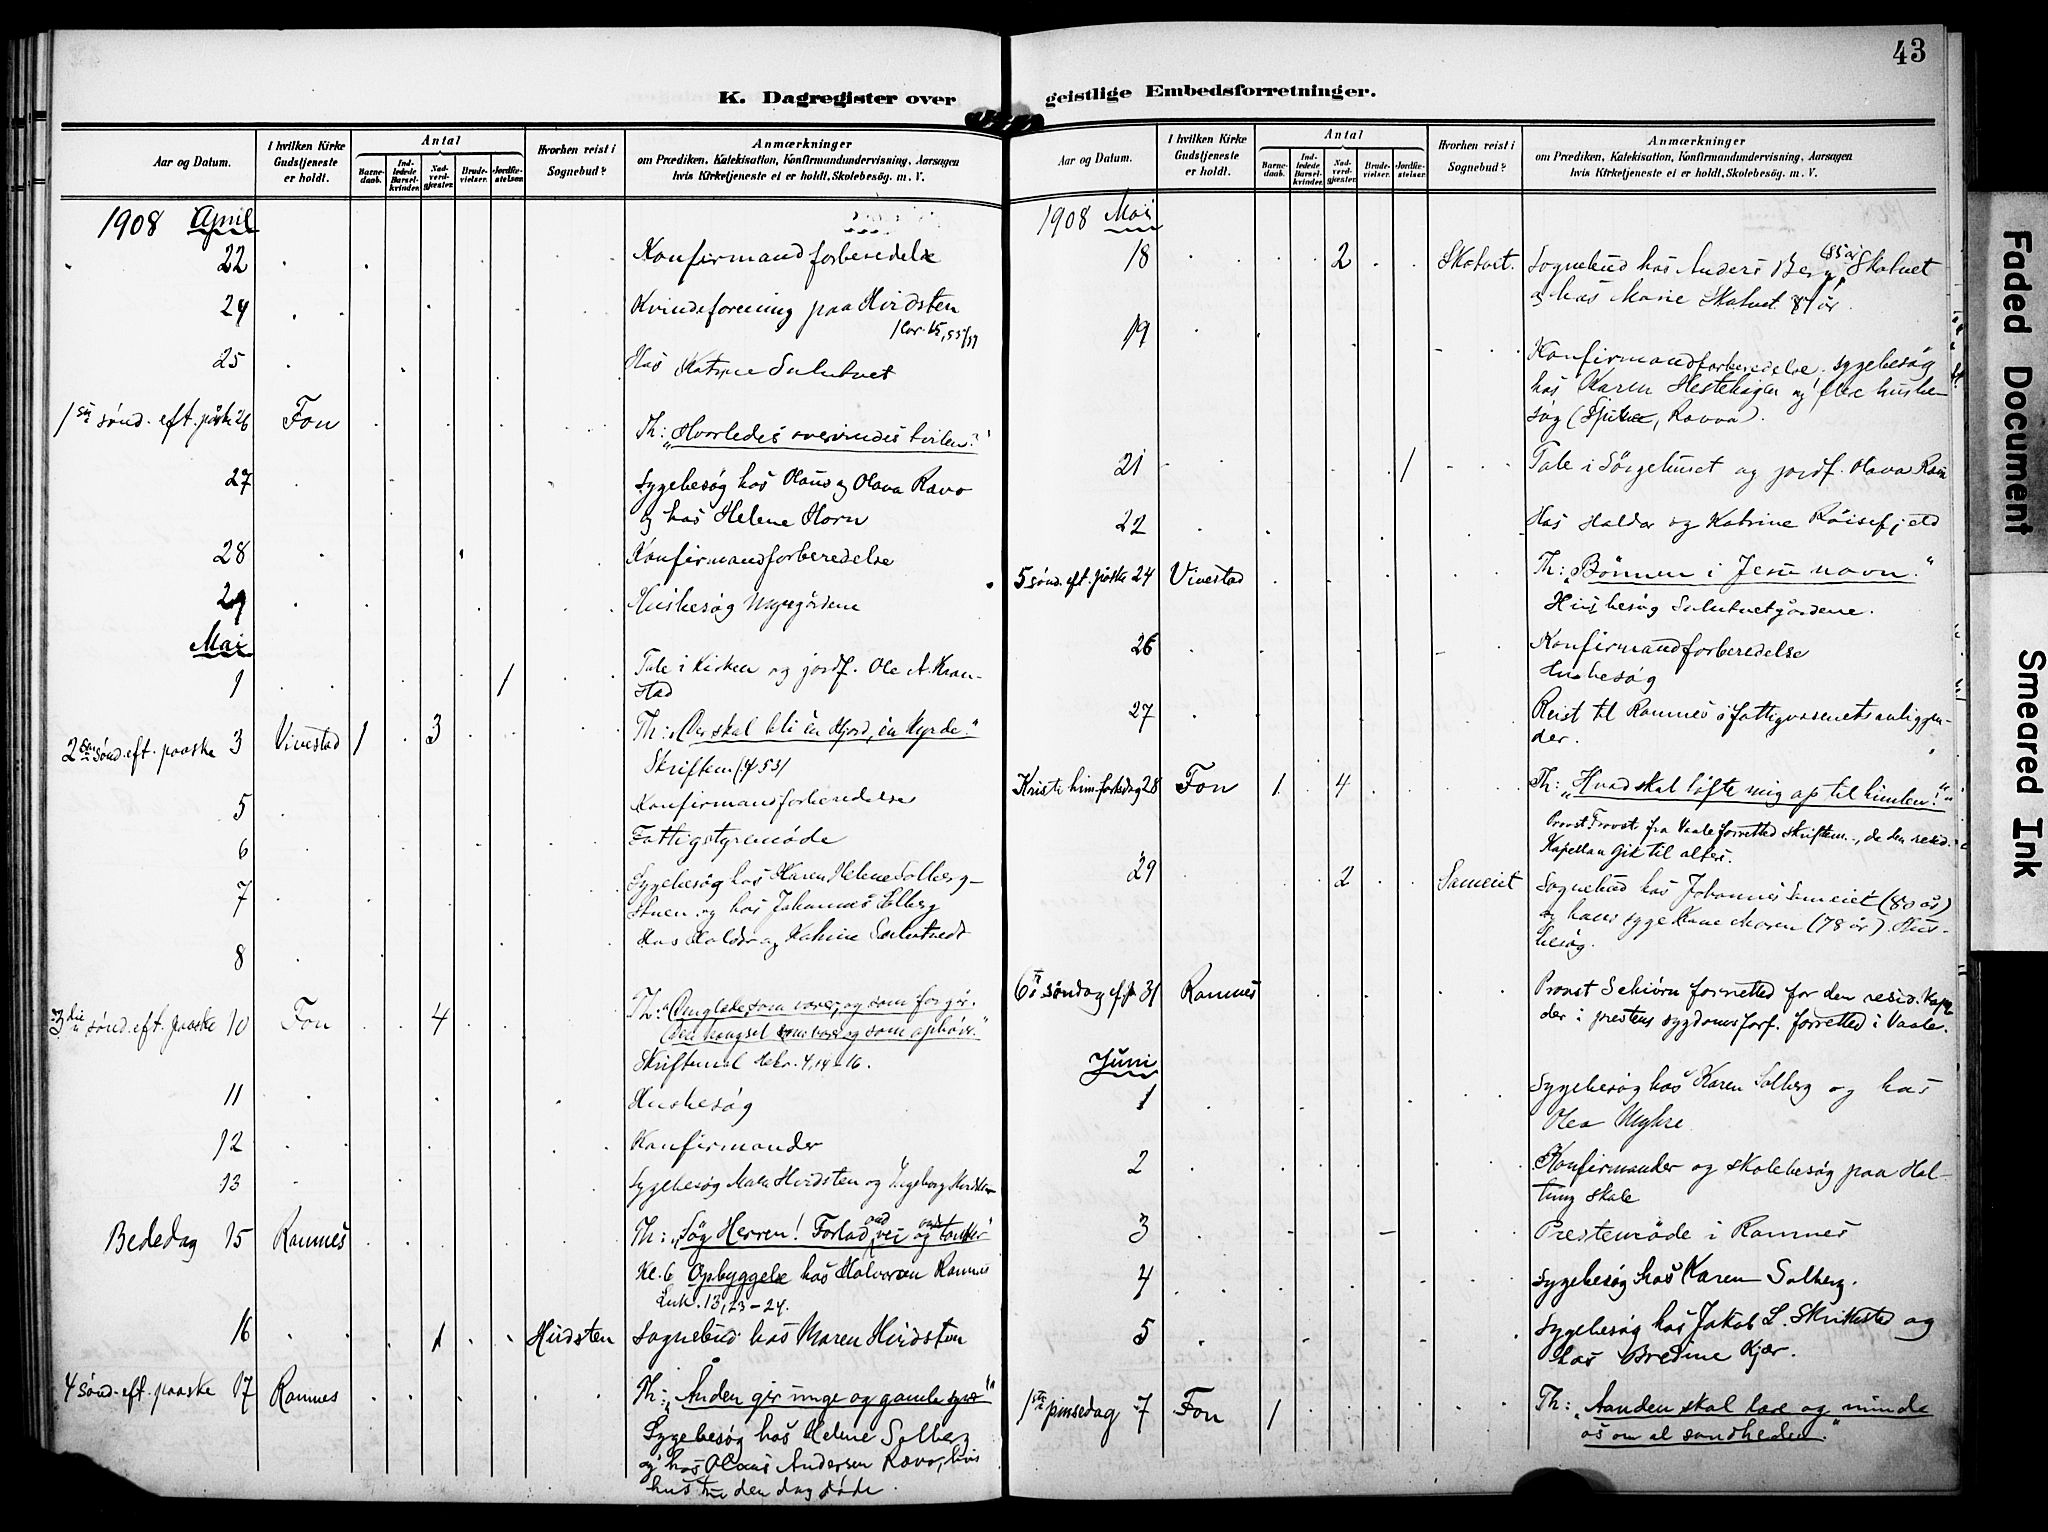 43
K. Dagregister over geistlige Embedsforretninger.
Aar og Datum.
I hvilken Kirke Gudstjeneste er holdt.
Antal
Barnedaab.
Indledede Barselkvinder.
Nadverdgjester.
Brudevielser.
Jordfæstelser.
Hvorhen reist i Sognebud?
Anmærkninger
om Prædiken, Katekisation, Konfirmandundervisning, Aarsagen
hvis Kirketjeneste ei er holdt, Skolebesøg. m. V.
1908 April
22 Konfirmandforberedelse
24 Kvindeforening paa Hirdsten
1 Cor. 15, 55/57
25 Hos Katrine Sulutvet
1ste sønd. eft. påske 26 Fon Th: "Hvorledes overvindes tvilen?"
27 Sygebesøg hos Olaus og Olava Ravo
og hos Helene Horn
28 Konfirmandforberedelse
29 Husbesøg Myregårdene
Mai
1 1 Tale i Kirken og jordf. Ole A.
stad
2den sønd. eft. paaske 3 Vivestad 1 3 Th: "Der skal bli èn Hjord, èn Hyrde."
Skriftem.
5 Konfirmandforberedelse
6 Fattigstyremöde
7 Sygebesøg hos Karen Helene Solberg-
stuen og hos Johannes Solberg
8 Hos Haldor og Katrine Sulutvedt
3die sønd. eft. paaske 10 Fon 4
Skriftemal Hebr. 4, 14 16.
11 Husbesøg
12 Konfirmander
13 Sygebesøg Maren Hirdsten og Ingeborg Hirdsten
Bededag 15 Ramnes Th: "Søg Herren! Forlad ond vei og onde tanker"
Kl. 6 Opbyggelse hos Halvorsen Ramnes
Luk. 13, 23-24.
16 1 Hirdsten Sognebud hos Maren Hirdsten
4 sønd. eft. paaske 17 Ramnes Th: "Ånden gir unge og gamle syner"
Sygebesøg hos Helene Solberg
og hos Olaus Andersen Ravo, hvis
hustru den dag døde.
1908 Mai
18 2 Skatvet. Sognebud hos Anders Berg, Skatvet
og hos Marie Skatvet 87 år.
19 Konfirmandforberedelse. sygebesøg
hos Karen Hestehagen og flere husbe-
søg (Ravoa).
21 1 Tale i Sörgehuset og jordf. Olava Ravo
22 Hos Haldor og Katrine Röisefjeld
5 sønd. eft. påske 24 Vivestad Th: "Bönnen i Jesu navn."
Husbesøg Sulutvetgårdene.
26 Konfirmandforberedelse
Husbesøg
27 Reist til Ramnes i fattigvæsenets anliggen-
der.
Kristi himfartsdag 28 Fon 1 4 Th: "Hvad skal løfte mig op til himlen?"
Provst fra Vaale forretted skriftem., da den resid.
Kapellan gik til alters.
29 2 Sameiet Sognebud hos Johannes Sameiet (80 år)
og hans syge Kone Maren (78 år). Hus-
besøg.
6te søndag ef. p. 31 Ramnes Provst Schiörn forretted for den resid. Kap.
der i prestens sygdomsforf. forretted i Vaale.
Juni
1 Sygebesøg hos Karen Solberg og hos
Olea Myhre
2 Konfirmander og skolebesøg paa Hol-
tung skole
3 Prestemöde i Ramnes
4 Sygebesøg hos Karen Solberg.
5 Sygebesøg hos Jakob L. Skrikestad og
hos Bredine Kjær.
1ste pinsedag 7 Fon 1 Th: "Aanden skal lære og minde
os om al sandheden."
Faded Document
Smeared Ink